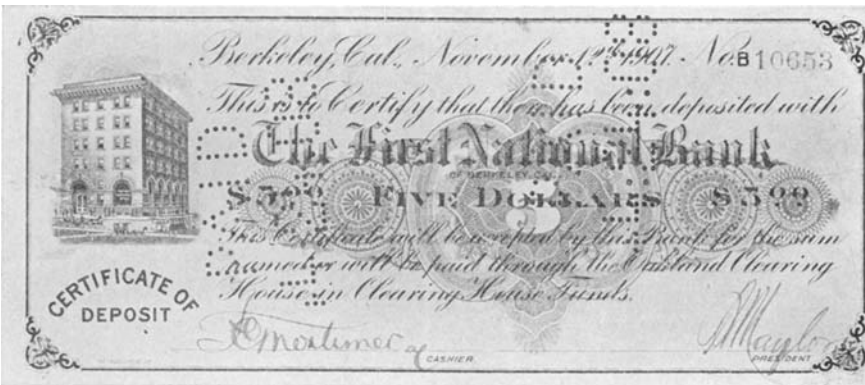 Berkeley, Cal., November 12th 1907. No. B10653
This is to Certify that there has been deposited with
The First National Bank
OF BERKELEY, CAL.
$5.00 FIVE DOLLARS $5.00
5
This Certificate will be accepted by this Bank for the sum
named or will be paid through the Oakland Clearing
House in Clearing House Funds.
CERTIFICATE OF
DEPOSIT
Mortimer
CASHIER
PRESIDENT